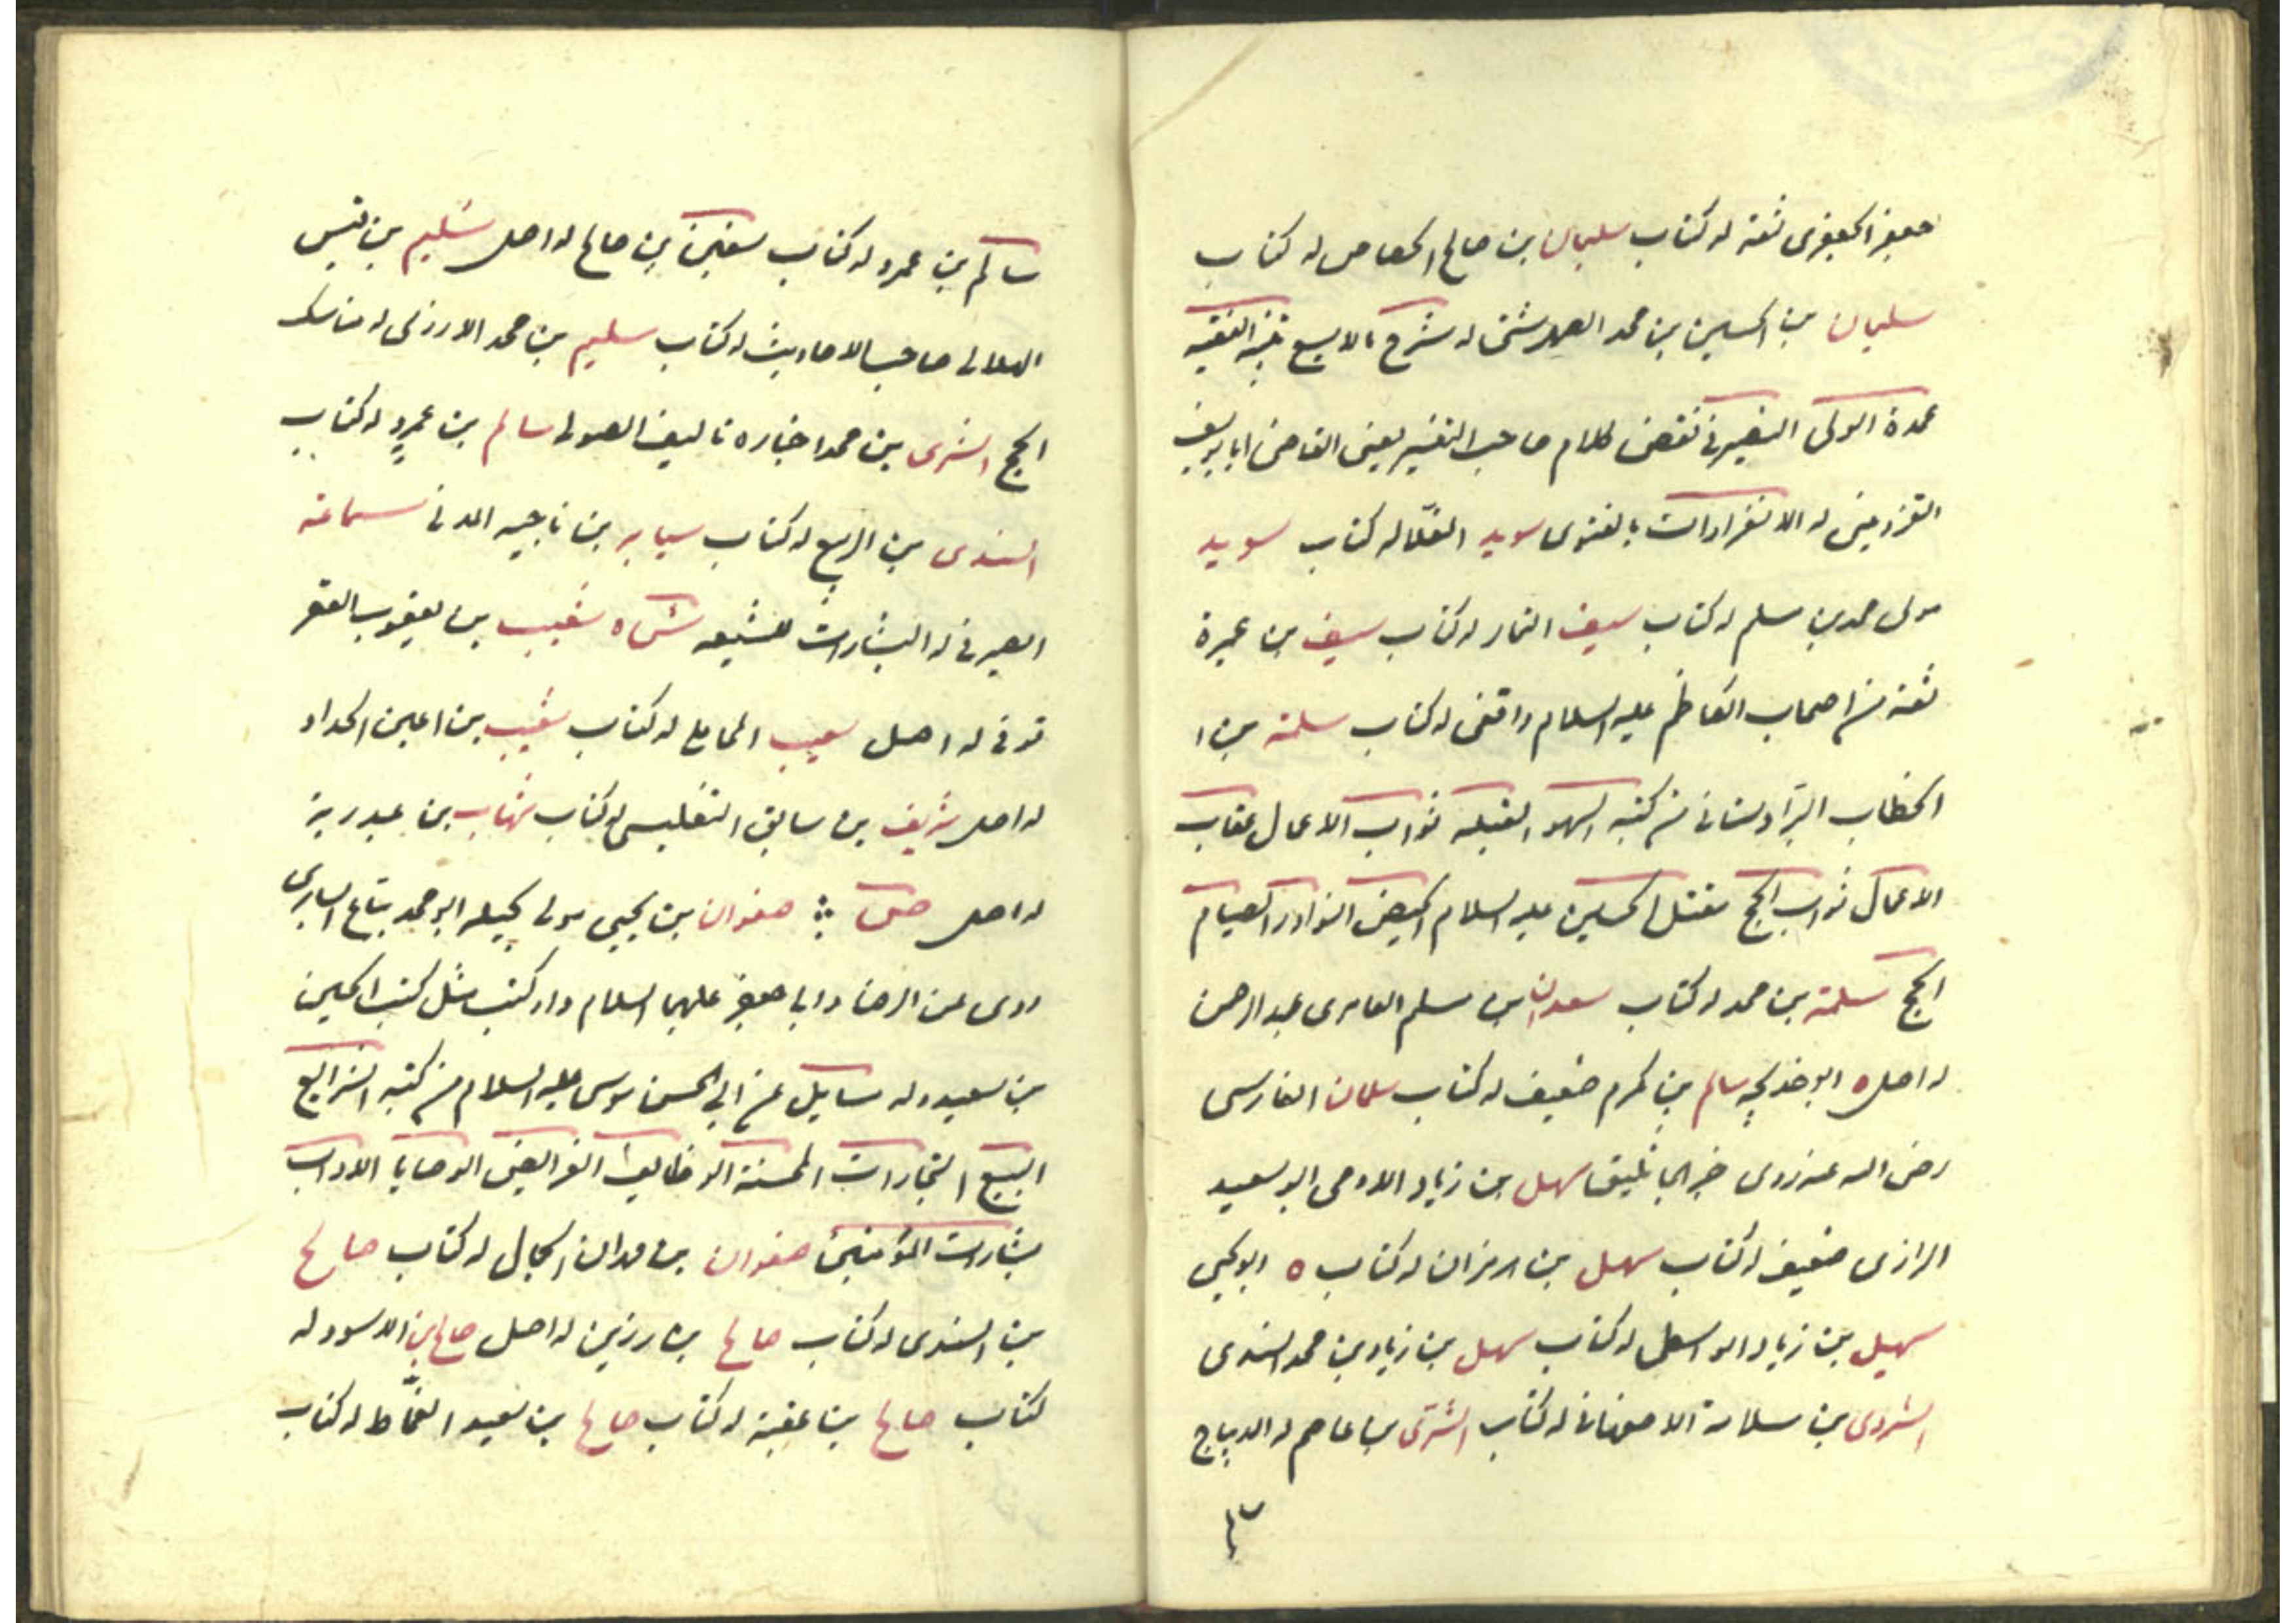 جعفر الجعفرى ثقة له كتاب سليمان بن صالح الجصاص له كتاب
سليمان بن الحسين بن محمد الصهرشتى له شرح مالا يسع تنبيه الفقيه
عمدة الولى النصير فى نقض كلام صاحب التفسير يعنى القاضى ابا يوسف
القزوينى له الانفرادات بالفتوى سويد القلا له كتاب سويد
مولى محمد بن مسلم له كتاب سيف التمار له كتاب سيف بن عميرة
ثقة من اصحاب الكاظم عليه السلام واقفى له كتاب سلمة بن
الخطاب البراوستانى من كتبه السهو القبلة ثواب الاعمال عقاب
الاعمال ثواب الحج مقتل الحسين عليه السلام الحيض النوادر الصيام
الحج سلمة بن محمد له كتاب سعدان بن مسلم العامرى عبد الرحمن
له اصل ه ابو خديجه سالم بن مكرم ضعيف له كتاب سلمان الفارسى
رضى الله عنه روى خبر الجاثليق سهل بن زياد الادمى ابو سعيد
الرازى ضعيف له كتاب سهل بن الهرمزان له كتاب ه ابو يحيى
سهيل بن زياد الواسطى له كتاب سهل بن زياد بن محمد السندى
السروى بن سلامة الاصفهانى له كتاب السرى بن عاصم له الديباج
سالم بن عمرو له كتاب سفين بن صالح له اصل سليم بن قيس
الهلالى صاحب الاحاديث له كتاب سليم بن محمد الازدى له مناسك
الحج السرى بن محمد اخباره تاليف الصولى سالم بن عمرو له كتاب
السندى بن الربيع له كتاب سيابه بن ناجيه المدنى سماعة
الصيرفى له البشارات للشيعه ش ه شعيب بن يعقوب العقر
قوفى له اصل شعيب المحاملى له كتاب شعيب بن اعين الحداد
له اصل شريف بن سابق التفليسى له كتاب شهاب بن عبد ربه
له اصل ص صفوان بن يحيى مولى بجيله ابو محمد بياع السابرى
روى عن الرضا وابى جعفر عليهما السلام وله كتب مثل كتب الحسين
بن سعيد وله مسايل عن ابى الحسن موسى عليه السلام من كتبه الشرايع
البيع التجارات المحبة الوظايف الفرايض الوصايا الاداب
بشارات المؤمنين صفوان بن مهران الجمال له كتاب صالح
بن السندى له كتاب صالح بن رزين له اصل صالح بن الاسود له
كتاب صالح بن عقبة له كتاب صالح بن سعيد القماط له كتاب